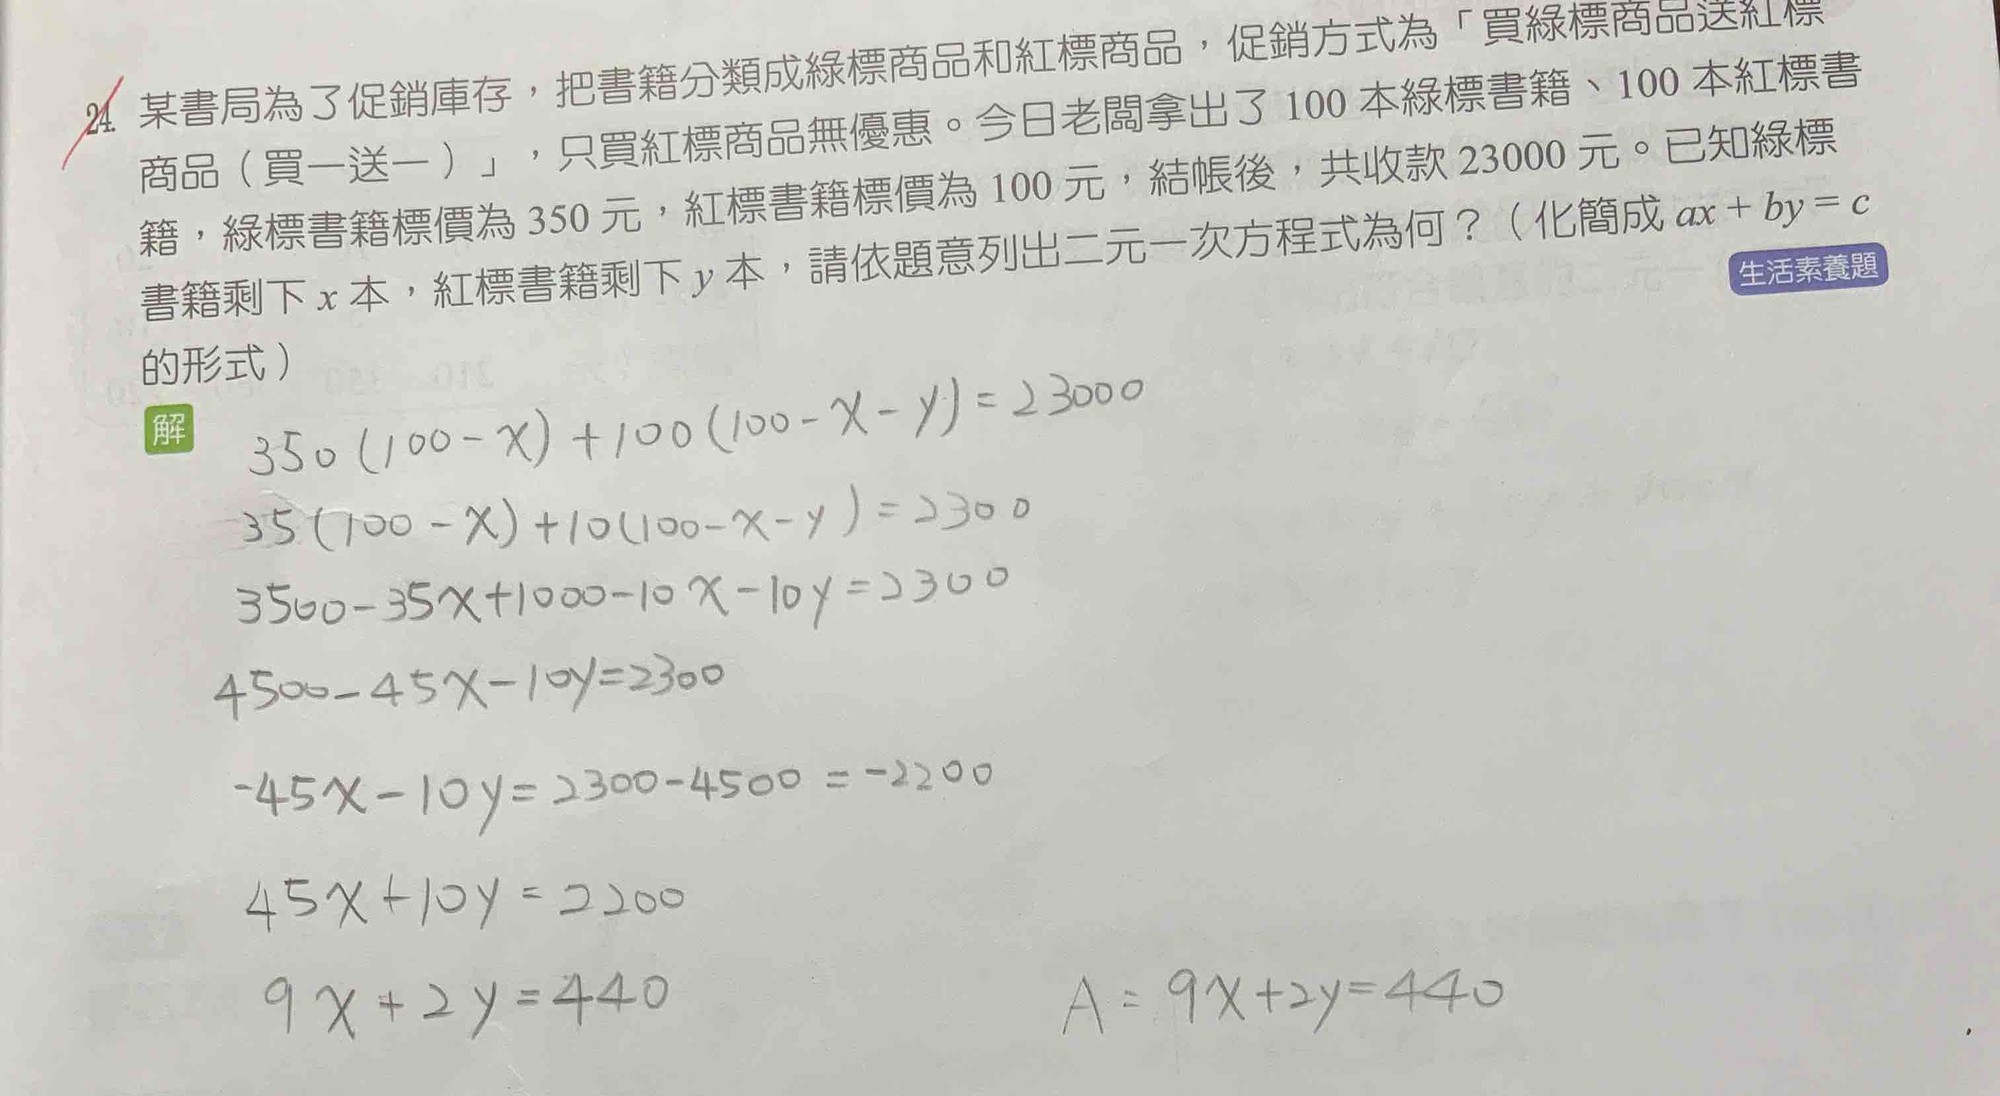 24. 某書局為了促銷庫存，把書籍分類成綠標商品和紅標商品，促銷方式為「買綠標商品送紅標
商品（買一送一）」，只買紅標商品無優惠。今日老闆拿出了 100 本綠標書籍、100 本紅標書
籍，綠標書籍標價為 350 元，紅標書籍標價為 100 元，結帳後，共收款 23000 元。已知綠標
書籍剩下 x 本，紅標書籍剩下 y 本，請依題意列出二元一次方程式為何？（化簡成 ax + by = c
的形式）
生活素養題
解
350(100-x)+100(100-x-y)=23000
35(100-x)+10(100-x-y)=2300
3500-35x+1000-10x-10y=2300
4500-45x-10y=2300
-45x-10y=2300-4500=-2200
45x+10y=2200
9x+2y=440
A=9x+2y=440